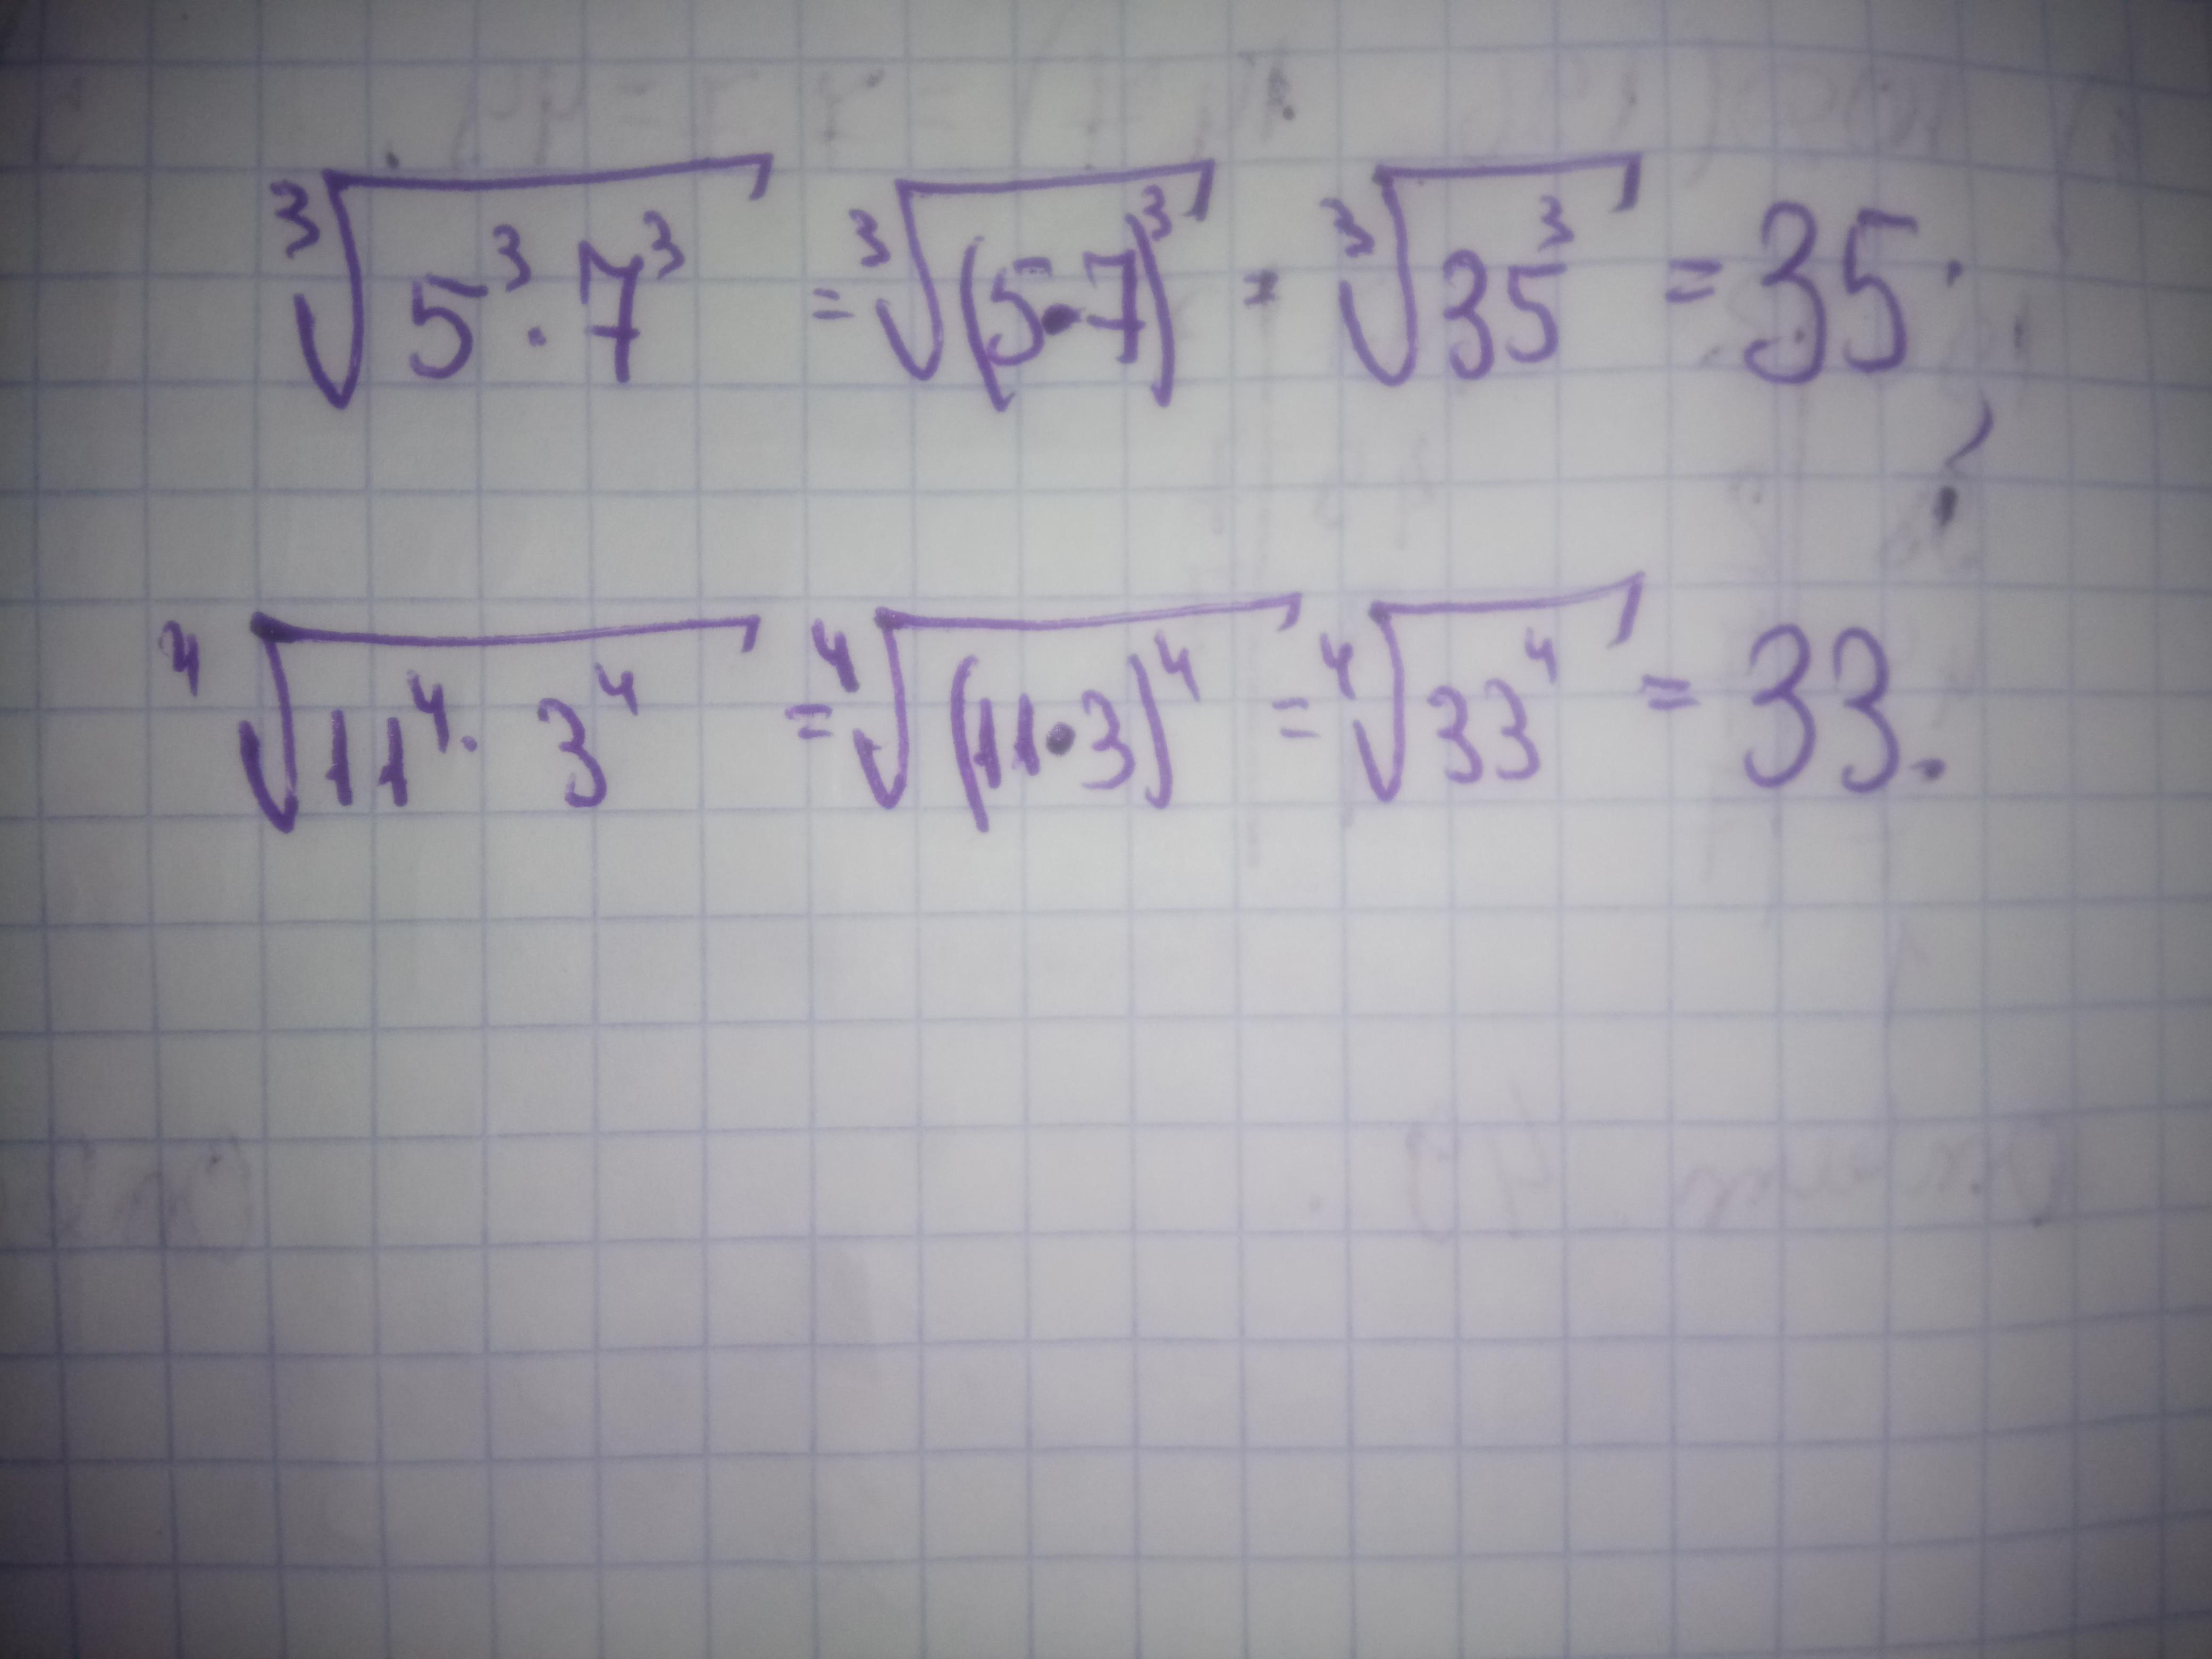 ∛(5³·7³) = ∛((5·7)³) = ∛(35³) = 35.
∜(11⁴·3⁴) = ∜((11·3)⁴) = ∜(33⁴) = 33.